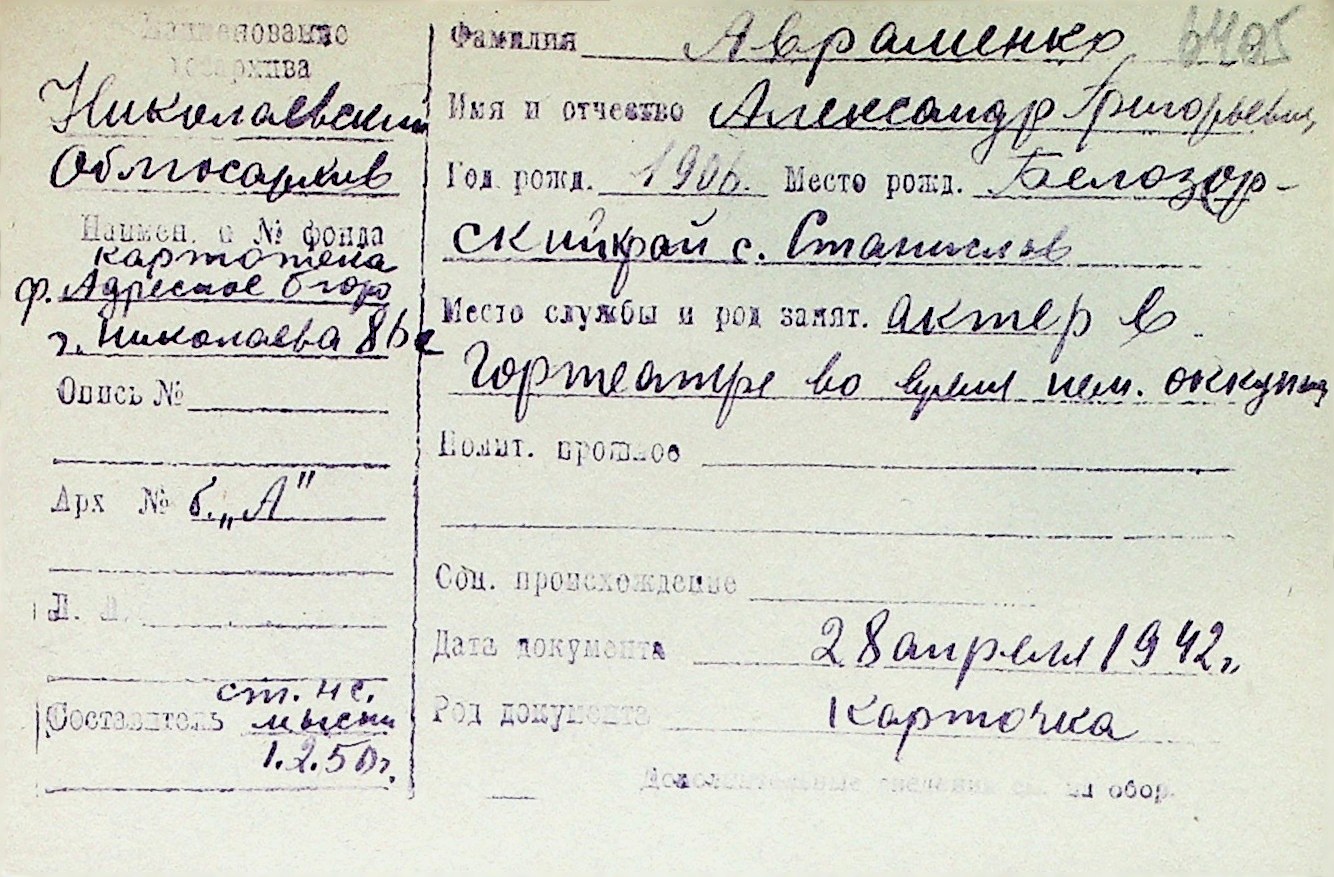 Наименование
госархива
Николаевский
Облгосархив
Наимен. и № фонда
картотека
ф. Адресное бюро
г. Николаева
Опись №
Арх № б. „А"
Л. Л.
ст. нс.
Составитель
1.2.50г.
Фамилия Авраменко
Имя и отчество Александр Григорьевич
Год рожд. 1906. Место рожд. Белозор-
ский край с. Станислав
Место службы и род занят. актер в
Гортеатре во время нем. оккупац
Полит. прошлое
Соц. происхождение
Дата документа 28 апреля 1942г.
Род документа Карточка
Дополнительные сведения см. на обор.